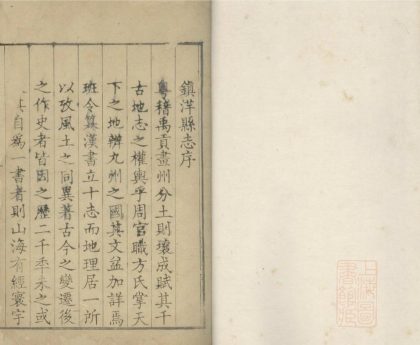 鎮洋縣志序
粵稽禹貢畫州分土則壤成賦其千
古地志之權輿乎周官職方氏掌天
下之地辨九州之國其文益加詳焉
班令纂漢書立十志而地理居一所
以攷風土之同異著古今之變遷後
之作史者皆因之歷二千年未之或
自為一書者則山海有經寰宇
上海圖
書館藏